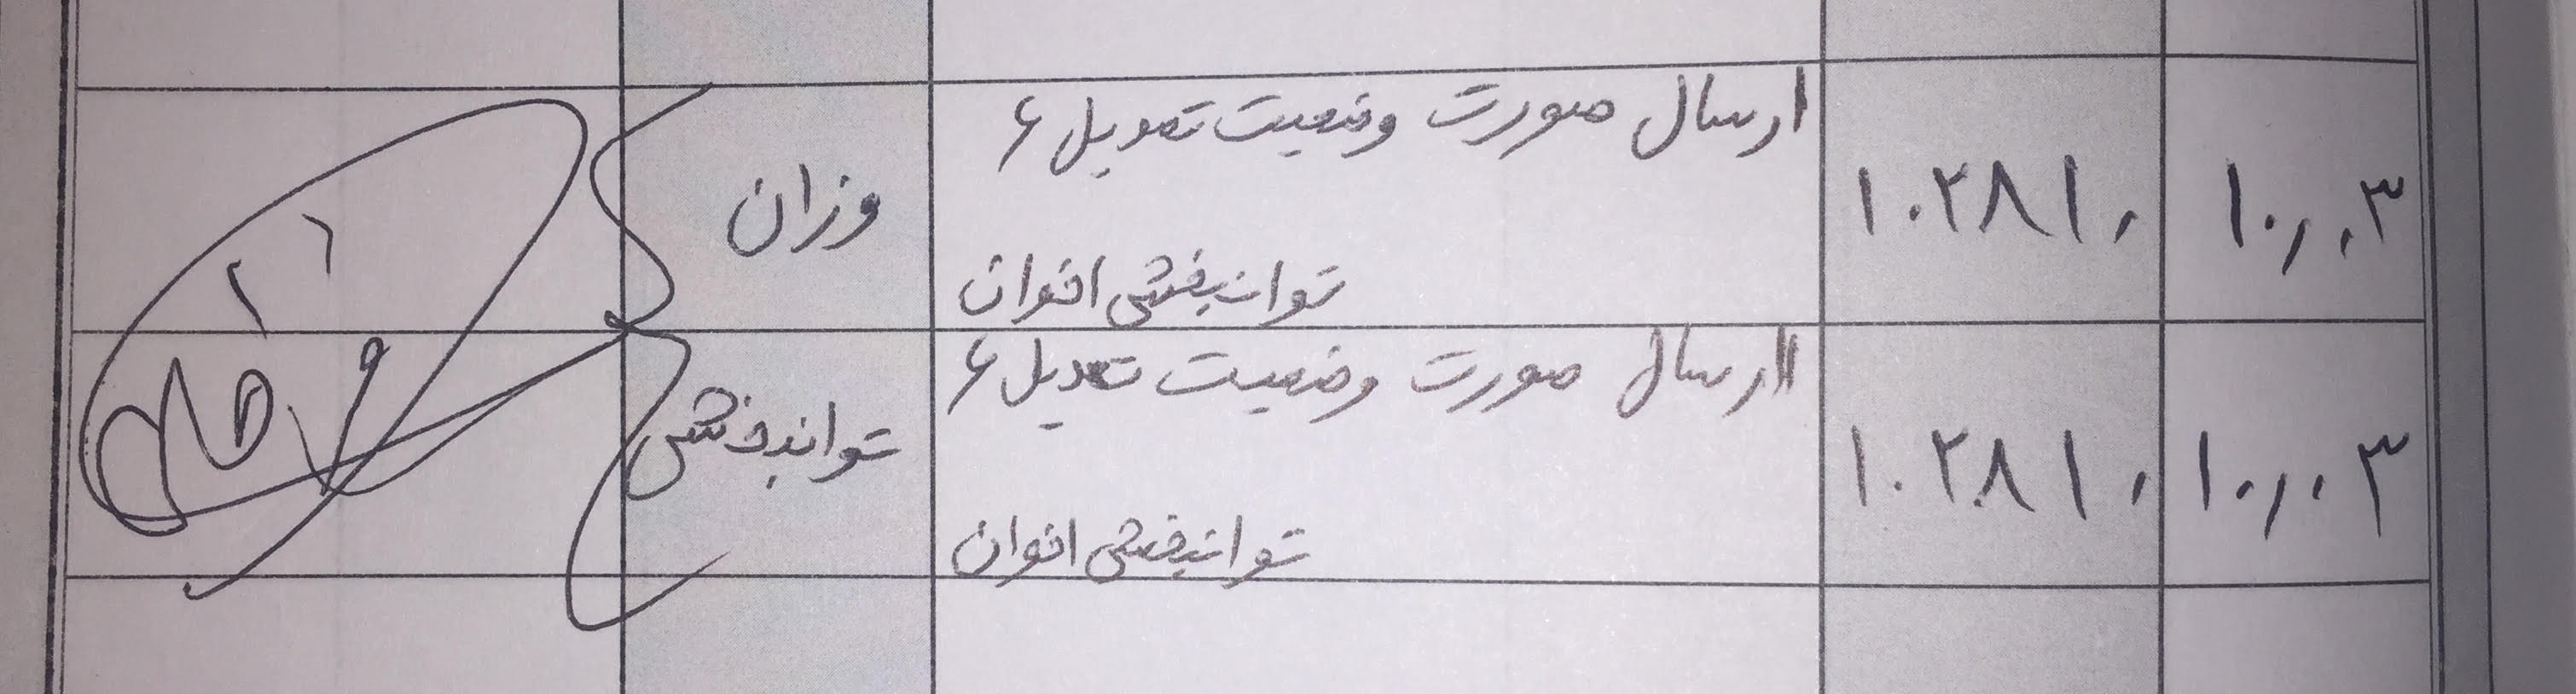 ۱۰٫۰۳ ۱۰۲۸۱۰ ارسال صورت وضعیت تعدیل ۶ وزان
توانبخشی اخوان
۱۰٫۰۳ ۱۰۲۸۱۰ ارسال صورت وضعیت تعدیل ۶ توانبخشی
توانبخشی اخوان